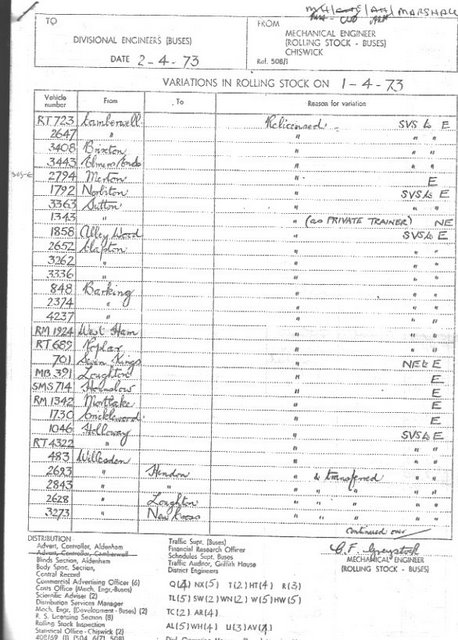 MARSHALL
TO
FROM
DIVISIONAL ENGINEERS (BUSES)
MECHANICAL ENGINEER
(ROLLING STOCK - BUSES)
CHISWICK
DATE 2-4-73
Ref. 508/J
VARIATIONS IN ROLLING STOCK ON 1-4-73
Vehicle number From To Reason for variation
RT 723 Camberwell Relicensed SVS to E
2647 " " " "
3408 Brixton " " "
3443 Elmers End " " "
2794 Merton " E
1792 Norbiton " SVS to E
3363 Sutton " " "
1343 " " (as PRIVATE TRAINER) NE
1858 Alley Wood " SVS to E
2652 Clapton " " "
3262 " " " "
3336 " " " "
848 Barking " " "
2374 " " " "
4237 " " " "
RM 1924 West Ham " " "
RT 689 Poplar " " "
701 Seven Kings " NE to E
MB 391 Loughton " E
SMS 714 Hounslow " E
RM 1342 Mortlake " E
1730 Cricklewood " E
1046 Holloway " SVS to E
RT 4322 " " " "
483 Willesden " " "
2693 " Hendon " & transferred " "
2843 " " " " " "
2628 " Loughton " " " " "
3273 " New Cross " " " " "
continued over
DISTRIBUTION
Advert. Controller, Aldenham
Advert. Controller, Camberwell
Blinds Section, Aldenham
Body Sync. Section,
Central Record
Commercial Advertising Officer (6)
Costs Office (Mech. Engr.-Buses)
Scientific Adviser (2)
Distribution Services Manager
Mech. Engr. (Development - Buses) (2)
R. S. Licensing Section (8)
Rolling Stock Inspection
Statistical Office - Chiswick (2)
Traffic Supt. (Buses)
Financial Research Officer
Schedules Supt. Buses
Traffic Auditor, Griffith House
District Engineers
Q(4) NX(5) T(2) HT(4) R(3)
TL(5) SW(2) WN(2) W(5) HW(5)
TC(2) AR(4)
AL(5) WH(4) U(3) AV(4)
C. F. Greystock
MECHANICAL ENGINEER
(ROLLING STOCK - BUSES)